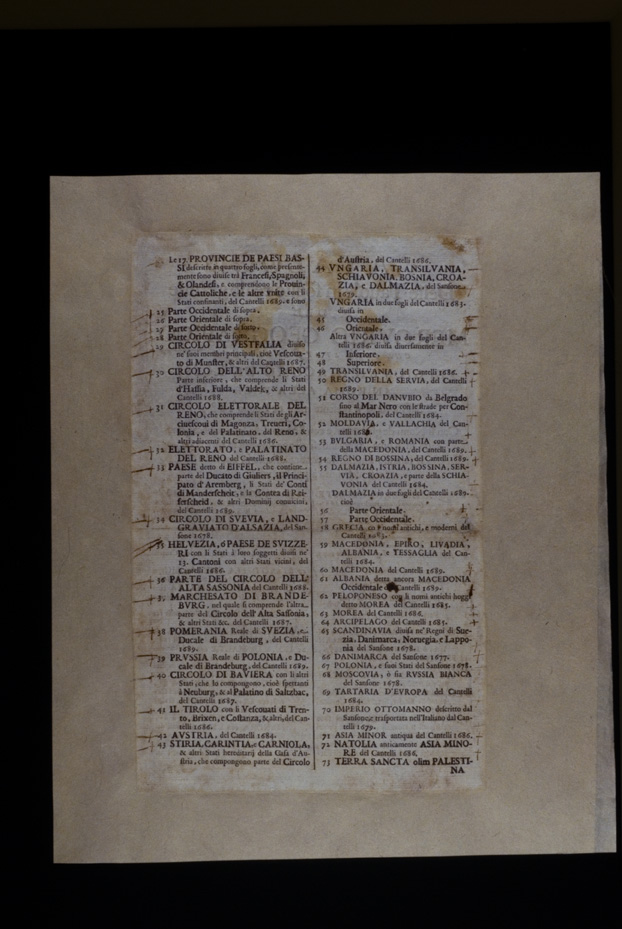 Le 17. PROVINCIE DE PAESI BAS-
SI descritte in quattro fogli, come presente-
mente sono diuise trà Francesi, Spagnoli,
& Olandesi, e comprendono le Prouin-
cie Cattoliche, e le altre vnite con li
Stati confinanti, del Cantelli 1689. e sono
25 Parte Occidentale di sopra.
26 Parte Orientale di sopra.
27 Parte Occidentale di sotto.
28 Parte Orientale di sotto.
29 CIRCOLO DI VESTFALIA diuiso
ne' suoi membri principali, cioè Vescoua-
to di Munster, & altri del Cantelli 1687.
30 CIRCOLO DELL'ALTO RENO
Parte inferiore, che comprende li Stati
d'Hassia, Fulda, Valdek, & altri del
Cantelli 1688.
31 CIRCOLO ELETTORALE DEL
RENO, che comprende li Stati de gli Ar-
ciuescoui di Magonza, Treueri, Co-
lonia, e del Palatinato, del Reno, &
altri adiacenti del Cantelli 1686.
32 ELETTORATO, e PALATINATO
DEL RENO del Cantelli 1688.
33 PAESE detto di EIFFEL, che contiene
parte del Ducato di Giuliers, il Princi-
pato d'Aremberg, li Stati de' Conti
di Manderscheit, e la Contea di Rei-
ferscheid, & altri Dominij conuicini,
del Cantelli 1689.
34 CIRCOLO DI SVEVIA, e LAND-
GRAVIATO D'ALSAZIA, del San-
sone 1678.
35 HELVEZIA, ò PAESE DE SVIZZE-
RI con li Stati à loro soggetti diuisi ne'
13. Cantoni con altri Stati vicini, del
Cantelli 1686.
36 PARTE DEL CIRCOLO DELL'
ALTA SASSONIA del Cantelli 1688.
37 MARCHESATO DI BRANDE-
BVRG, nel quale si comprende l'altra
parte del Circolo dell'Alta Sassonia,
& altri Stati &c. del Cantelli 1687.
38 POMERANIA Reale di SVEZIA, e
Ducale di Brandeburg, del Cantelli
1689.
39 PRVSSIA Reale di POLONIA, e Du-
cale di Brandeburg, del Cantelli 1689.
40 CIRCOLO DI BAVIERA con li altri
Stati, che lo compongono, cioè spettanti
à Neuburg, & al Palatino di Saltzbac,
del Cantelli 1687.
41 IL TIROLO con li Vescouati di Tren-
to, Brixen, e Costanza, & altri, del Can-
telli 1686.
42 AVSTRIA, del Cantelli 1684.
43 STIRIA, CARINTIA, e CARNIOLA,
& altri Stati hereditarij della Casa d'Au-
stria, che compongono parte del Circolo
d'Austria, del Cantelli 1686.
44 VNGARIA, TRANSILVANIA,
SCHIAVONIA, BOSNIA, CROA-
ZIA, e DALMAZIA, del Sansone
1679.
VNGARIA in due fogli del Cantelli 1683.
diuisa in
45 Occidentale.
46 Orientale.
Altra VNGARIA in due fogli del Can-
telli 1686. diuisa diuersamente in
47 Inferiore.
48 Superiore.
49 TRANSILVANIA, del Cantelli 1686.
50 REGNO DELLA SERVIA, del Cantelli
1689.
51 CORSO DEL DANVBIO da Belgrado
sino al Mar Nero con le strade per Con-
stantinopoli, del Cantelli 1684.
52 MOLDAVIA, e VALLACHIA del Can-
telli
53 BVLGARIA, e ROMANIA con parte
della MACEDONIA, del Cantelli 1689.
54 REGNO DI BOSSINA, del Cantelli 1689.
55 DALMAZIA, ISTRIA, BOSSINA, SER-
VIA, CROAZIA, e parte della SCHIA-
VONIA del Cantelli 1684.
DALMAZIA in due fogli del Cantelli 1689.
cioè
56 Parte Orientale.
57 Parte Occidentale.
58 GRECIA con nomi antichi, e moderni del
Cantelli 1683.
59 MACEDONIA, EPIRO, LIVADIA,
ALBANIA, e TESSAGLIA del Can-
telli 1684.
60 MACEDONIA del Cantelli 1689.
61 ALBANIA detta ancora MACEDONIA
Occidentale Cantelli 1689.
62 PELOPONESO con li nomi antichi hoggi
detto MOREA del Cantelli 1685.
63 MOREA del Cantelli 1686.
64 ARCIPELAGO del Cantelli 1685.
65 SCANDINAVIA diuisa ne' Regni di Sue-
zia, Danimarca, Noruegia, e Lappo-
nia del Sansone 1678.
66 DANIMARCA del Sansone 1677.
67 POLONIA, e suoi Stati del Sansone 1678.
68 MOSCOVIA, ò sia RVSSIA BIANCA
del Sansone 1678.
69 TARTARIA D'EVROPA del Cantelli
1684.
70 IMPERIO OTTOMANNO descritto dal
Sansone e trasportata nell'Italiano dal Can-
telli 1679.
71 ASIA MINOR antiqua del Cantelli 1686.
72 NATOLIA anticamente ASIA MINO-
RE del Cantelli 1686.
73 TERRA SANCTA olim PALESTI-
NA